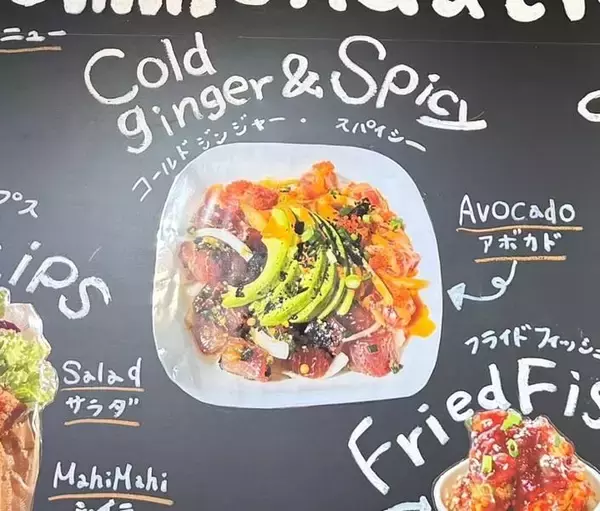 ニュー
Cold
ginger & Spicy
コールドジンジャー・スパイシー
プス
ips
Avocado
アボカド
Salad
サラダ
フライドフィッシュ
Fried Fis
MahiMahi
シイラ